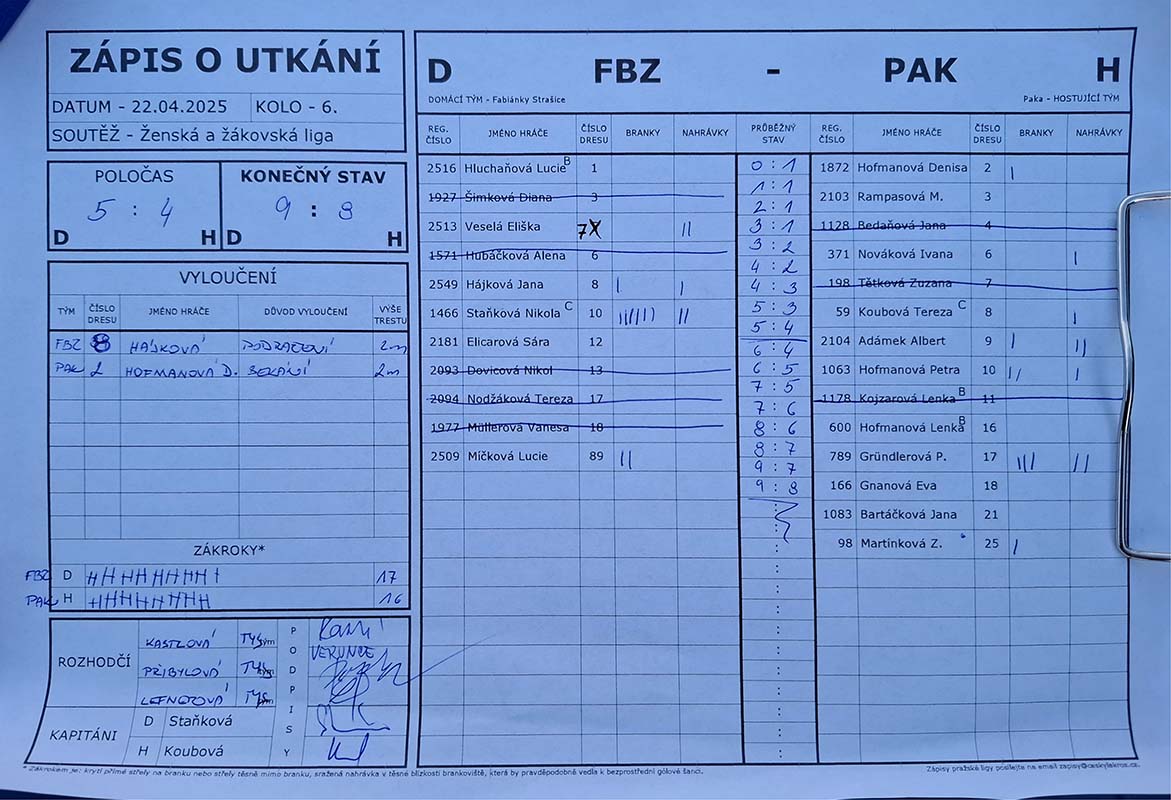 ZÁPIS O UTKÁNÍ
DATUM - 22.04.2025 KOLO - 6.
SOUTĚŽ - Ženská a žákovská liga
POLOČAS KONEČNÝ STAV
5 : 4 9 : 8
D H D H
VYLOUČENÍ
TÝM ČÍSLO DRESU JMÉNO HRÁČE DŮVOD VYLOUČENÍ VÝŠE TRESTU
FBZ 8 HÁJKOVÁ PODRAŽENÍ 2m
PAK 2 HOFMANOVÁ D. SEKÁNÍ 2m
ZÁKROKY*
FBZ D 17
PAK H 16
ROZHODČÍ
KASTLOVÁ TÝM
PŘIBYLOVÁ TÝM
LEFNEROVÁ TÝM
PODPISY
VERUNCE
KAPITÁNI
D Staňková
H Koubová
D FBZ - PAK H
DOMÁCÍ TÝM - Fabiánky Strašice Paka - HOSTUJÍCÍ TÝM
REG. ČÍSLO JMÉNO HRÁČE ČÍSLO DRESU BRANKY NAHRÁVKY PRŮBĚŽNÝ STAV REG. ČÍSLO JMÉNO HRÁČE ČÍSLO DRESU BRANKY NAHRÁVKY
2516 Hluchaňová Lucie B 1
1927 Šimková Diana 3
2513 Veselá Eliška 7 X II
1571 Hubáčková Alena 6
2549 Hájková Jana 8 I I
1466 Staňková Nikola C 10 IIIIII II
2181 Elicarová Sára 12
2093 Dovicová Nikol 13
2094 Nodžáková Tereza 17
1977 Müllerová Vanesa 18
2509 Míčková Lucie 89 II
0 : 1
1 : 1
2 : 1
3 : 1
3 : 2
4 : 2
4 : 3
5 : 3
5 : 4
6 : 4
6 : 5
7 : 5
7 : 6
8 : 6
8 : 7
9 : 7
9 : 8
1872 Hofmanová Denisa 2 I
2103 Rampasová M. 3
1128 Bedaňová Jana 4
371 Nováková Ivana 6 I
198 Tětková Zuzana 7
59 Koubova Tereza C 8 I
2104 Adámek Albert 9 I II
1063 Hofmanová Petra 10 II I
1178 Kojzarová Lenka B 11
600 Hofmanová Lenka B 16
789 Gründlerová P. 17 III II
166 Gnanová Eva 18
1083 Bartáčková Jana 21
98 Martinková Z. 25 I
* Zákrokem je: krytí přímé střely na branku nebo střely těsně mimo branku, sražená nahrávka v těsné blízkosti brankoviště, která by pravděpodobně vedla k bezprostřední gólové šanci.
Zápisy pražské ligy posílejte na email zapisy@ceskylakros.cz.